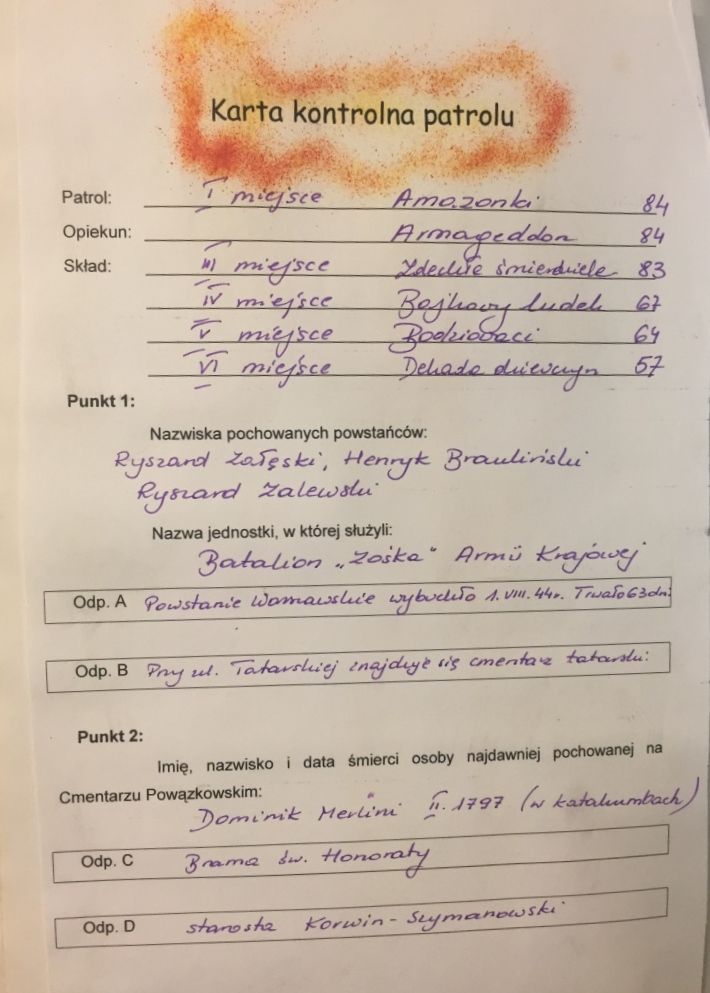 Karta kontrolna patrolu
Patrol: I miejsce Amazonki 84
Opiekun: Armageddon 84
Skład: III miejsce Zdechłe śmierdziele 83
IV miejsce Bojkowy ludek 67
V miejsce Bodziaści 64
VI miejsce Dekada dziewczyn 57
Punkt 1:
Nazwiska pochowanych powstańców:
Ryszard Załęski, Henryk Brauliński
Ryszard Zalewski
Nazwa jednostki, w której służyli:
Batalion „Zośka" Armii Krajowej
Odp. A Powstanie Warszawskie wybuchło 1.VIII.44r. Trwało 63 dni
Odp. B Przy ul. Tatarskiej znajduje się cmentarz tatarski
Punkt 2:
Imię, nazwisko i data śmierci osoby najdawniej pochowanej na
Cmentarzu Powązkowskim:
Dominik Merlini II. 1797 (w katakumbach)
Odp. C Brama św. Honoraty
Odp. D starosta Korwin-Szymanowski